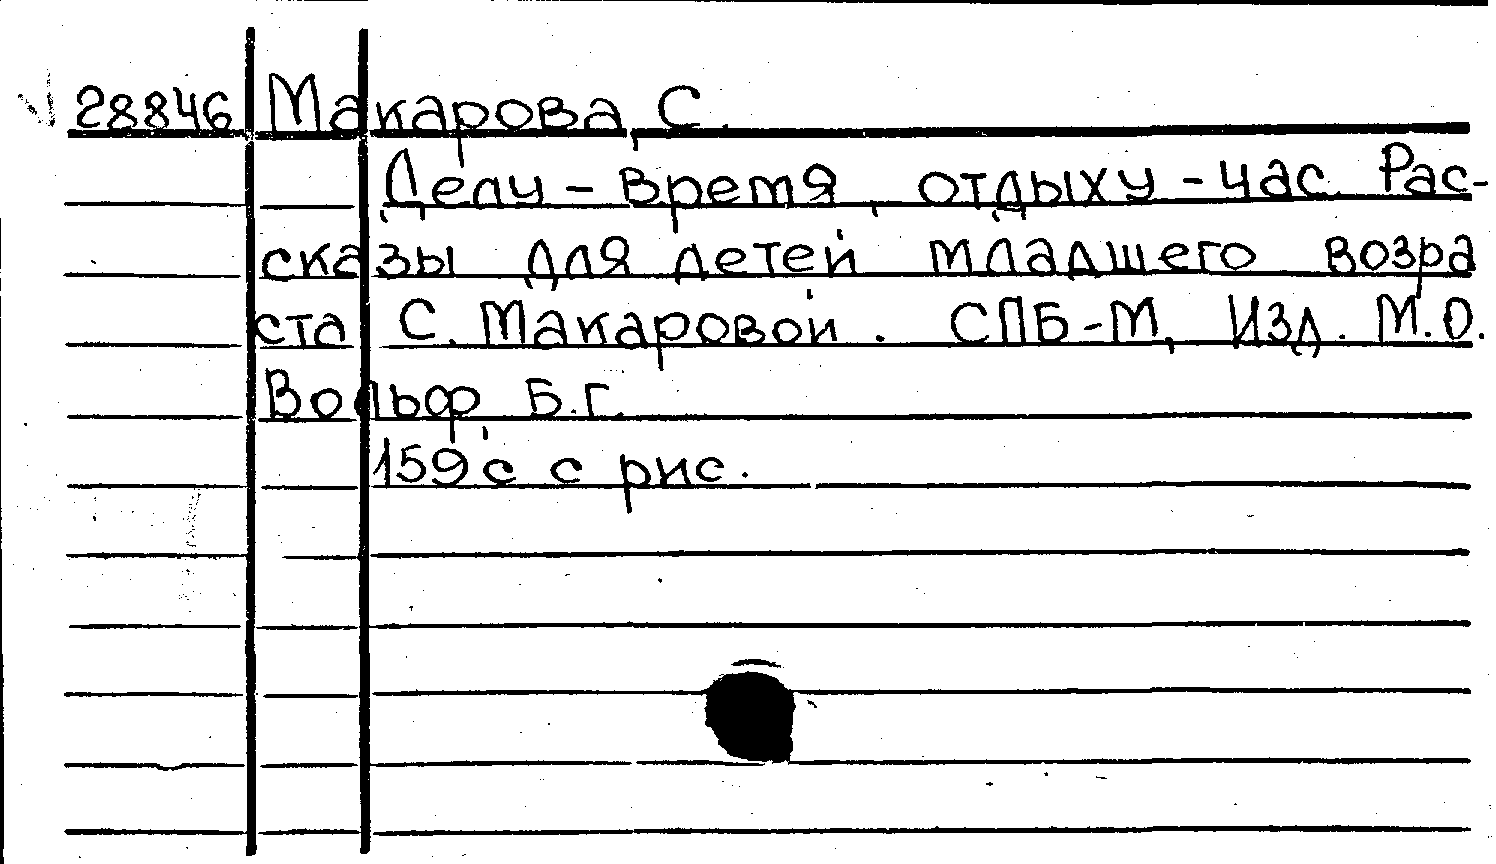 28846 Макарова, С.
Делу - время, отдыху - час. Рас-
сказы для детей младшего возра
ста С. Макаровой. СПБ-М, Изд. М.О.
Вольф, Б.г.
159 с с рис.